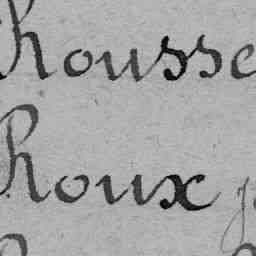 Rousse
Roux